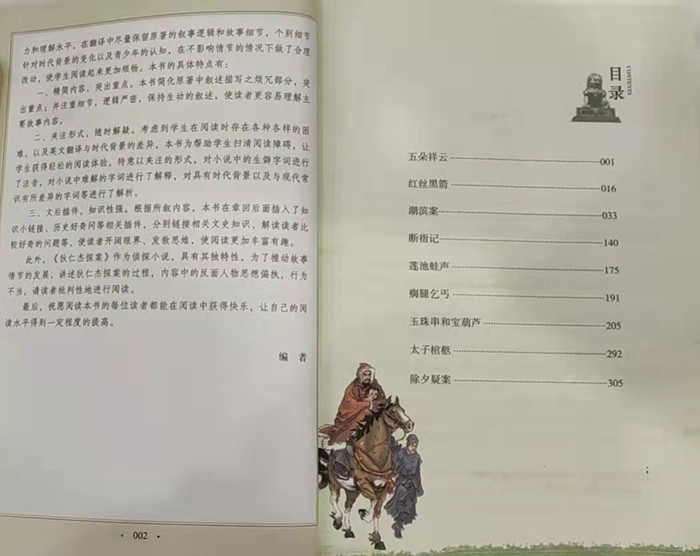 力和理解水平，在翻译中尽量保留原著的叙事逻辑和故事细节，个别细节
针对时代背景的变化以及青少年的认知，在不影响情节的情况下做了合理
改动，使学生阅读起来更加顺畅。本书的具体特点有：
一、精简内容，突出重点。本书简化原著中叙述描写之烦冗部分，突
出重点；并注重细节，逻辑严密，保持生动的叙述，使读者更容易理解主
要故事内容。
二、夹注形式，随时解疑。考虑到学生在阅读时存在各种各样的困
难，以及英文翻译与时代背景的差异，本书为帮助学生扫清阅读障碍，让
学生获得轻松的阅读体验，特意以夹注的形式，对小说中的生僻字词进行
了注音，对小说中难解的字词进行了解释，对具有时代背景以及与现代常
识有所差异的字词等进行了解析。
三、文后插件，知识性强。根据所叙内容，本书在章回后面插入了知
识小链接、历史好奇问等相关插件，分别链接相关文史知识、解读读者比
较好奇的问题等，使读者开阔眼界、发散思维，使阅读更加丰富有趣。
此外，《狄仁杰探案》作为侦探小说，具有其独特性，为了推动故事
情节的发展，讲述狄仁杰探案的过程，内容中的反面人物思想偏执，行为
不当，请读者批判性地进行阅读。
最后，祝愿阅读本书的每位读者都能在阅读中获得快乐，让自己的阅
读水平得到一定程度的提高。
编 者
· 002 ·
目录
CONTENTS
五朵祥云 001
红丝黑箭 016
湖滨案 033
断指记 140
莲池蛙声 175
瘸腿乞丐 191
玉珠串和宝葫芦 205
太子棺柩 292
除夕疑案 305